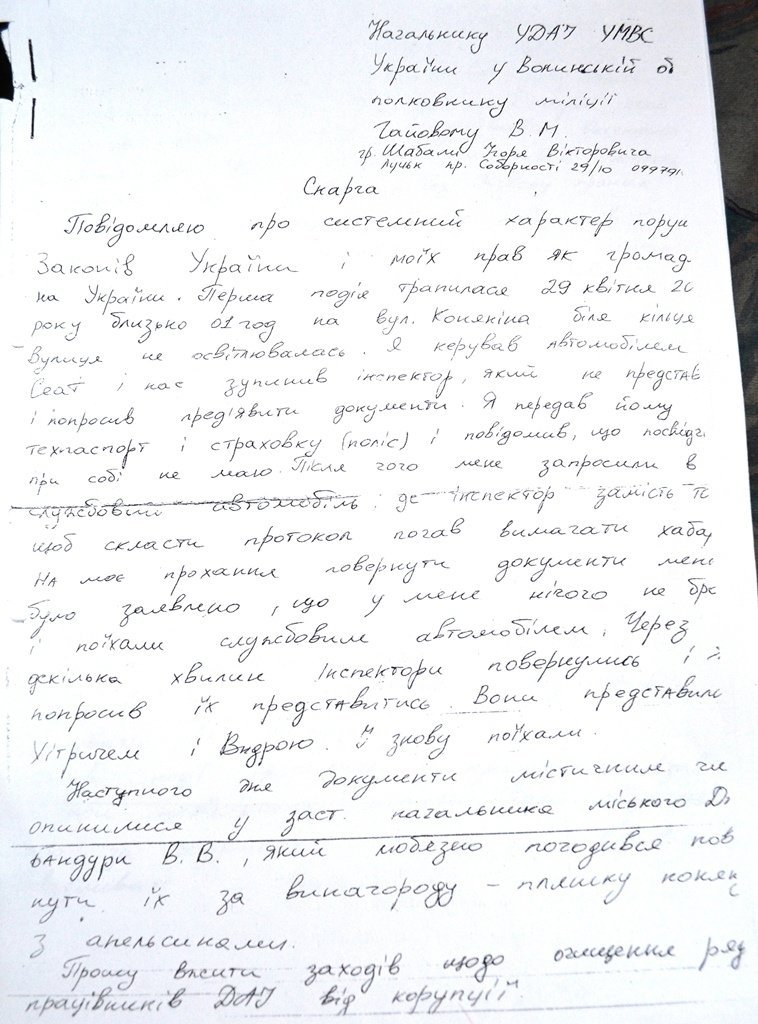 Начальнику УДАІ УМВС
України у Волинській об
полковнику міліції
Гайовому В.М.
гр. Шабали Ігоря Вікторовича
Луцьк пр. Соборності 29/10 099791
Скарга
Повідомляю про системний характер поруш
Законів України і моїх прав як громад
на України. Перша подія трапилася 29 квітня 20
року близько 01 год на вул. Конякіна біля кільця
Вулиця не освітлювалась. Я керував автомобілем
Сеат і нас зупинив інспектор, який не представ
і попросив пред'явити документи. Я передав йому
техпаспорт і страховку (поліс) і повідомив, що посвідч
при собі не маю. Після чого мене запросили в
службовий автомобіль, де інспектор замість т
щоб скласти протокол почав вимагати хаба
На моє прохання повернути документи мені
було заявлено, що у мене нічого не бра
і поїхали службовим автомобілем. Через
декілька хвилин Інспектори повернулись і я
попросив їх представитись. Вони представили
Хітричем і Видрою. І знову поїхали.
Наступного дня документи містичним чи
опинилися у заст. начальника міського Д
Бандури В.В., який люб'язно погодився пов
нути їх за винагороду - пляшку коняк
з апельсинами.
Прошу вжити заходів щодо очищення ряд
працівників ДАІ від корупції.